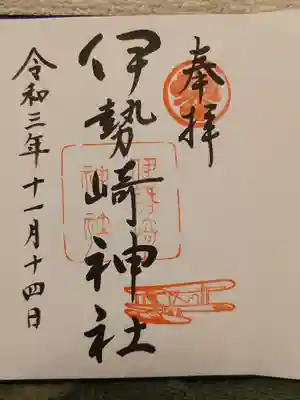 奉拝
伊勢崎神社
令和三年十一月十四日
伊勢崎
神社